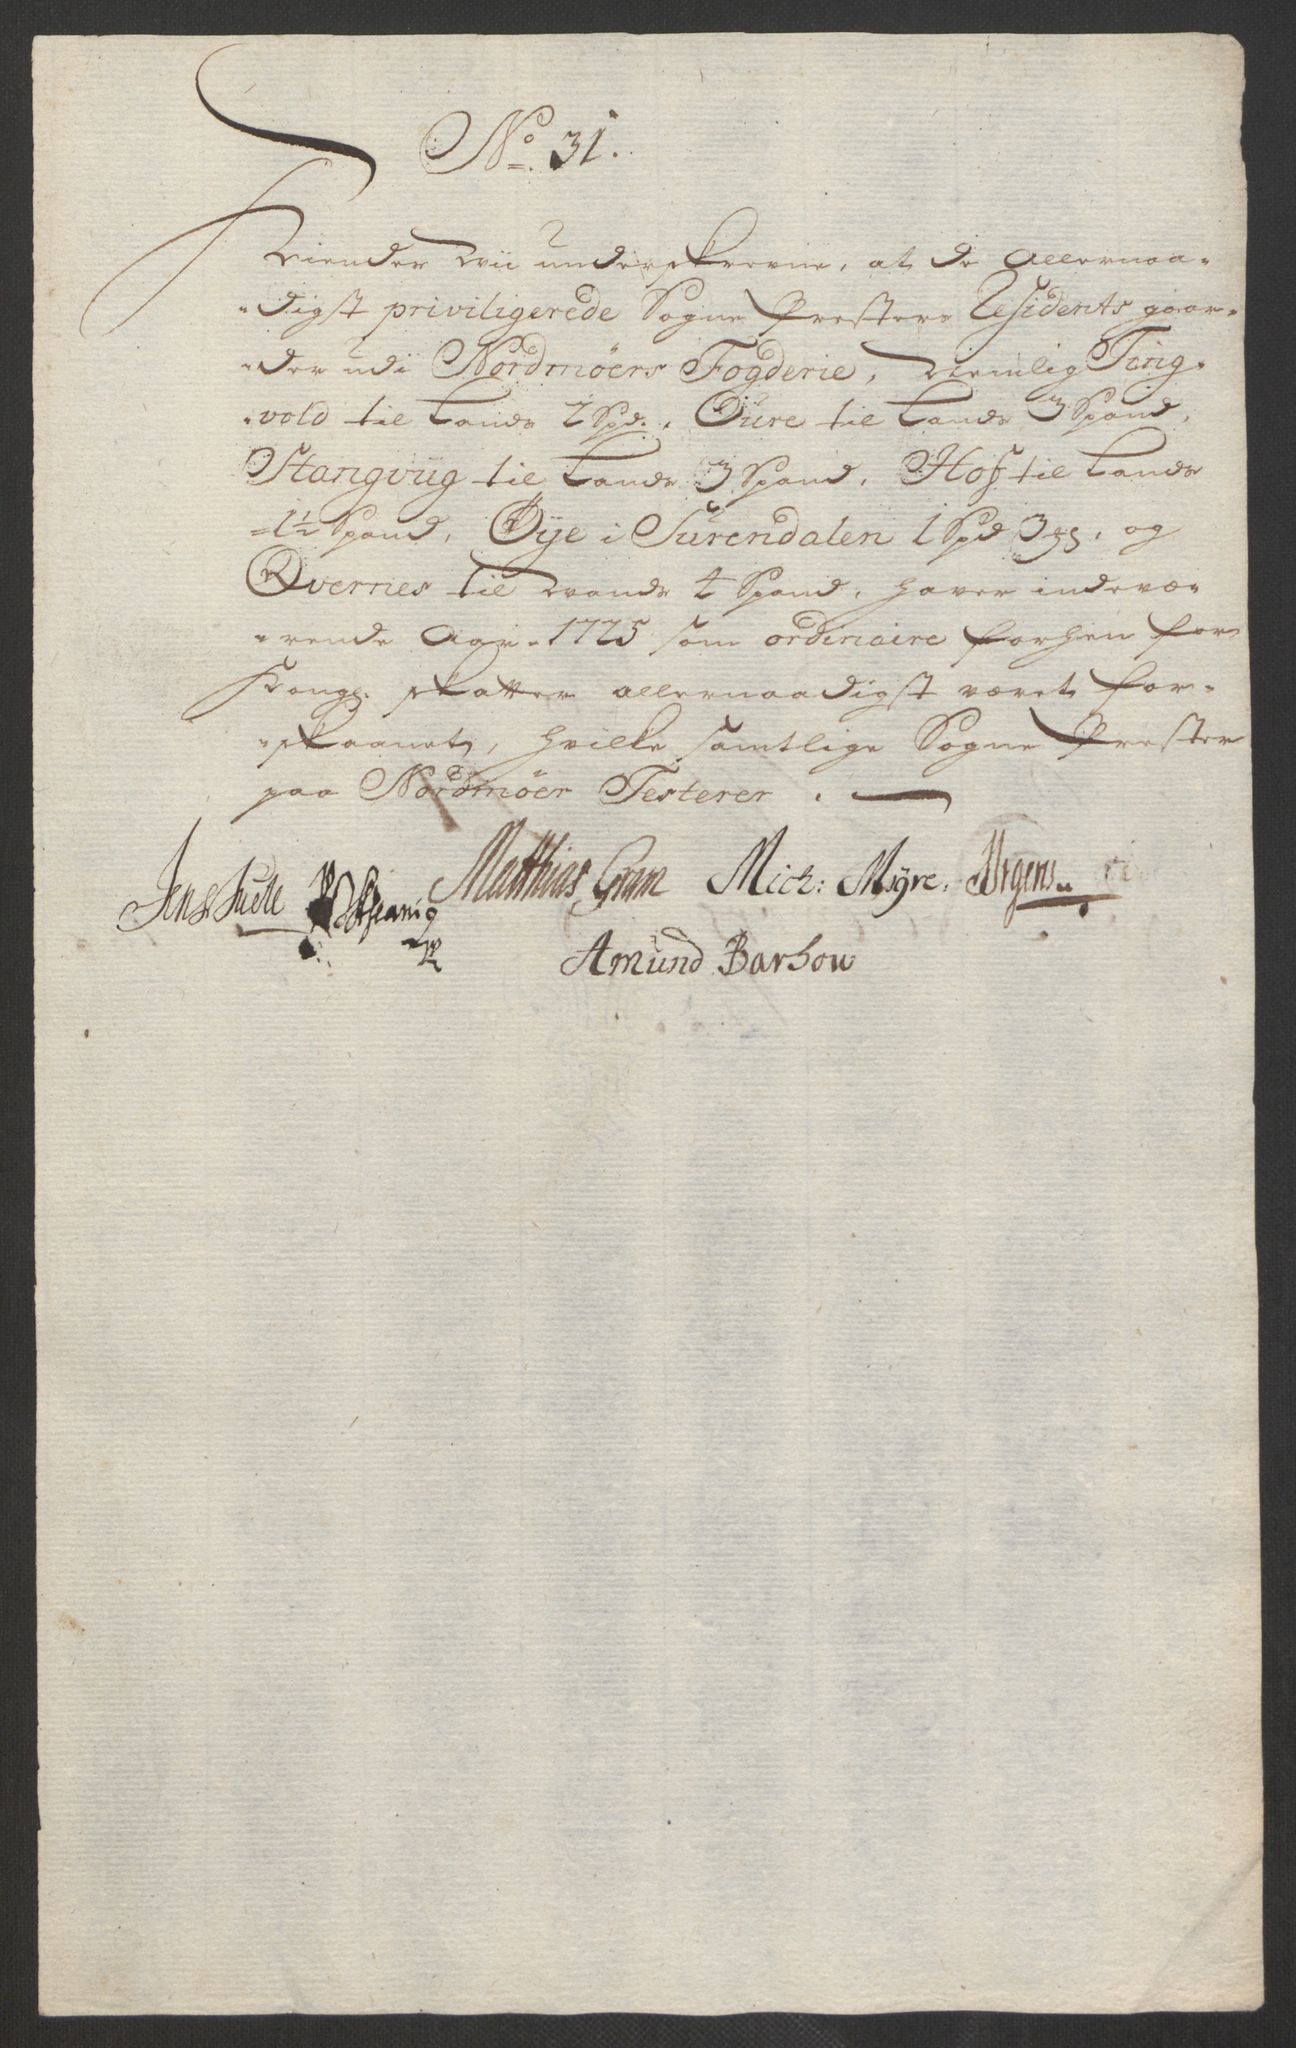 No. 31.
Kiender Wii underskrevne, at de Allernaa-
digst priviligerede Sogne Præsters Residents gaar-
der udi Nordmøers Fogderie, Nemlig Ting-
vold til Lands 2 Spd. Øure til Lands 3 Spand,
Stangvüg til Lands 3 Spand, Hof til Lands
1½ Spand, Øye i Surendalen 1 Spd 3 og
Qvernes til Lands 4 Spand, haver indevæ-
rende Aar 1725 som ordinaire forhen for
Kongl. skatter allernaadigst været for-
skaanet, hvilke samtlige Sogne Præster
paa Nordmøer Testerer.
Jens Juell Matthias Gram Mich: Msyre. Ørgens
Amünd Barhow